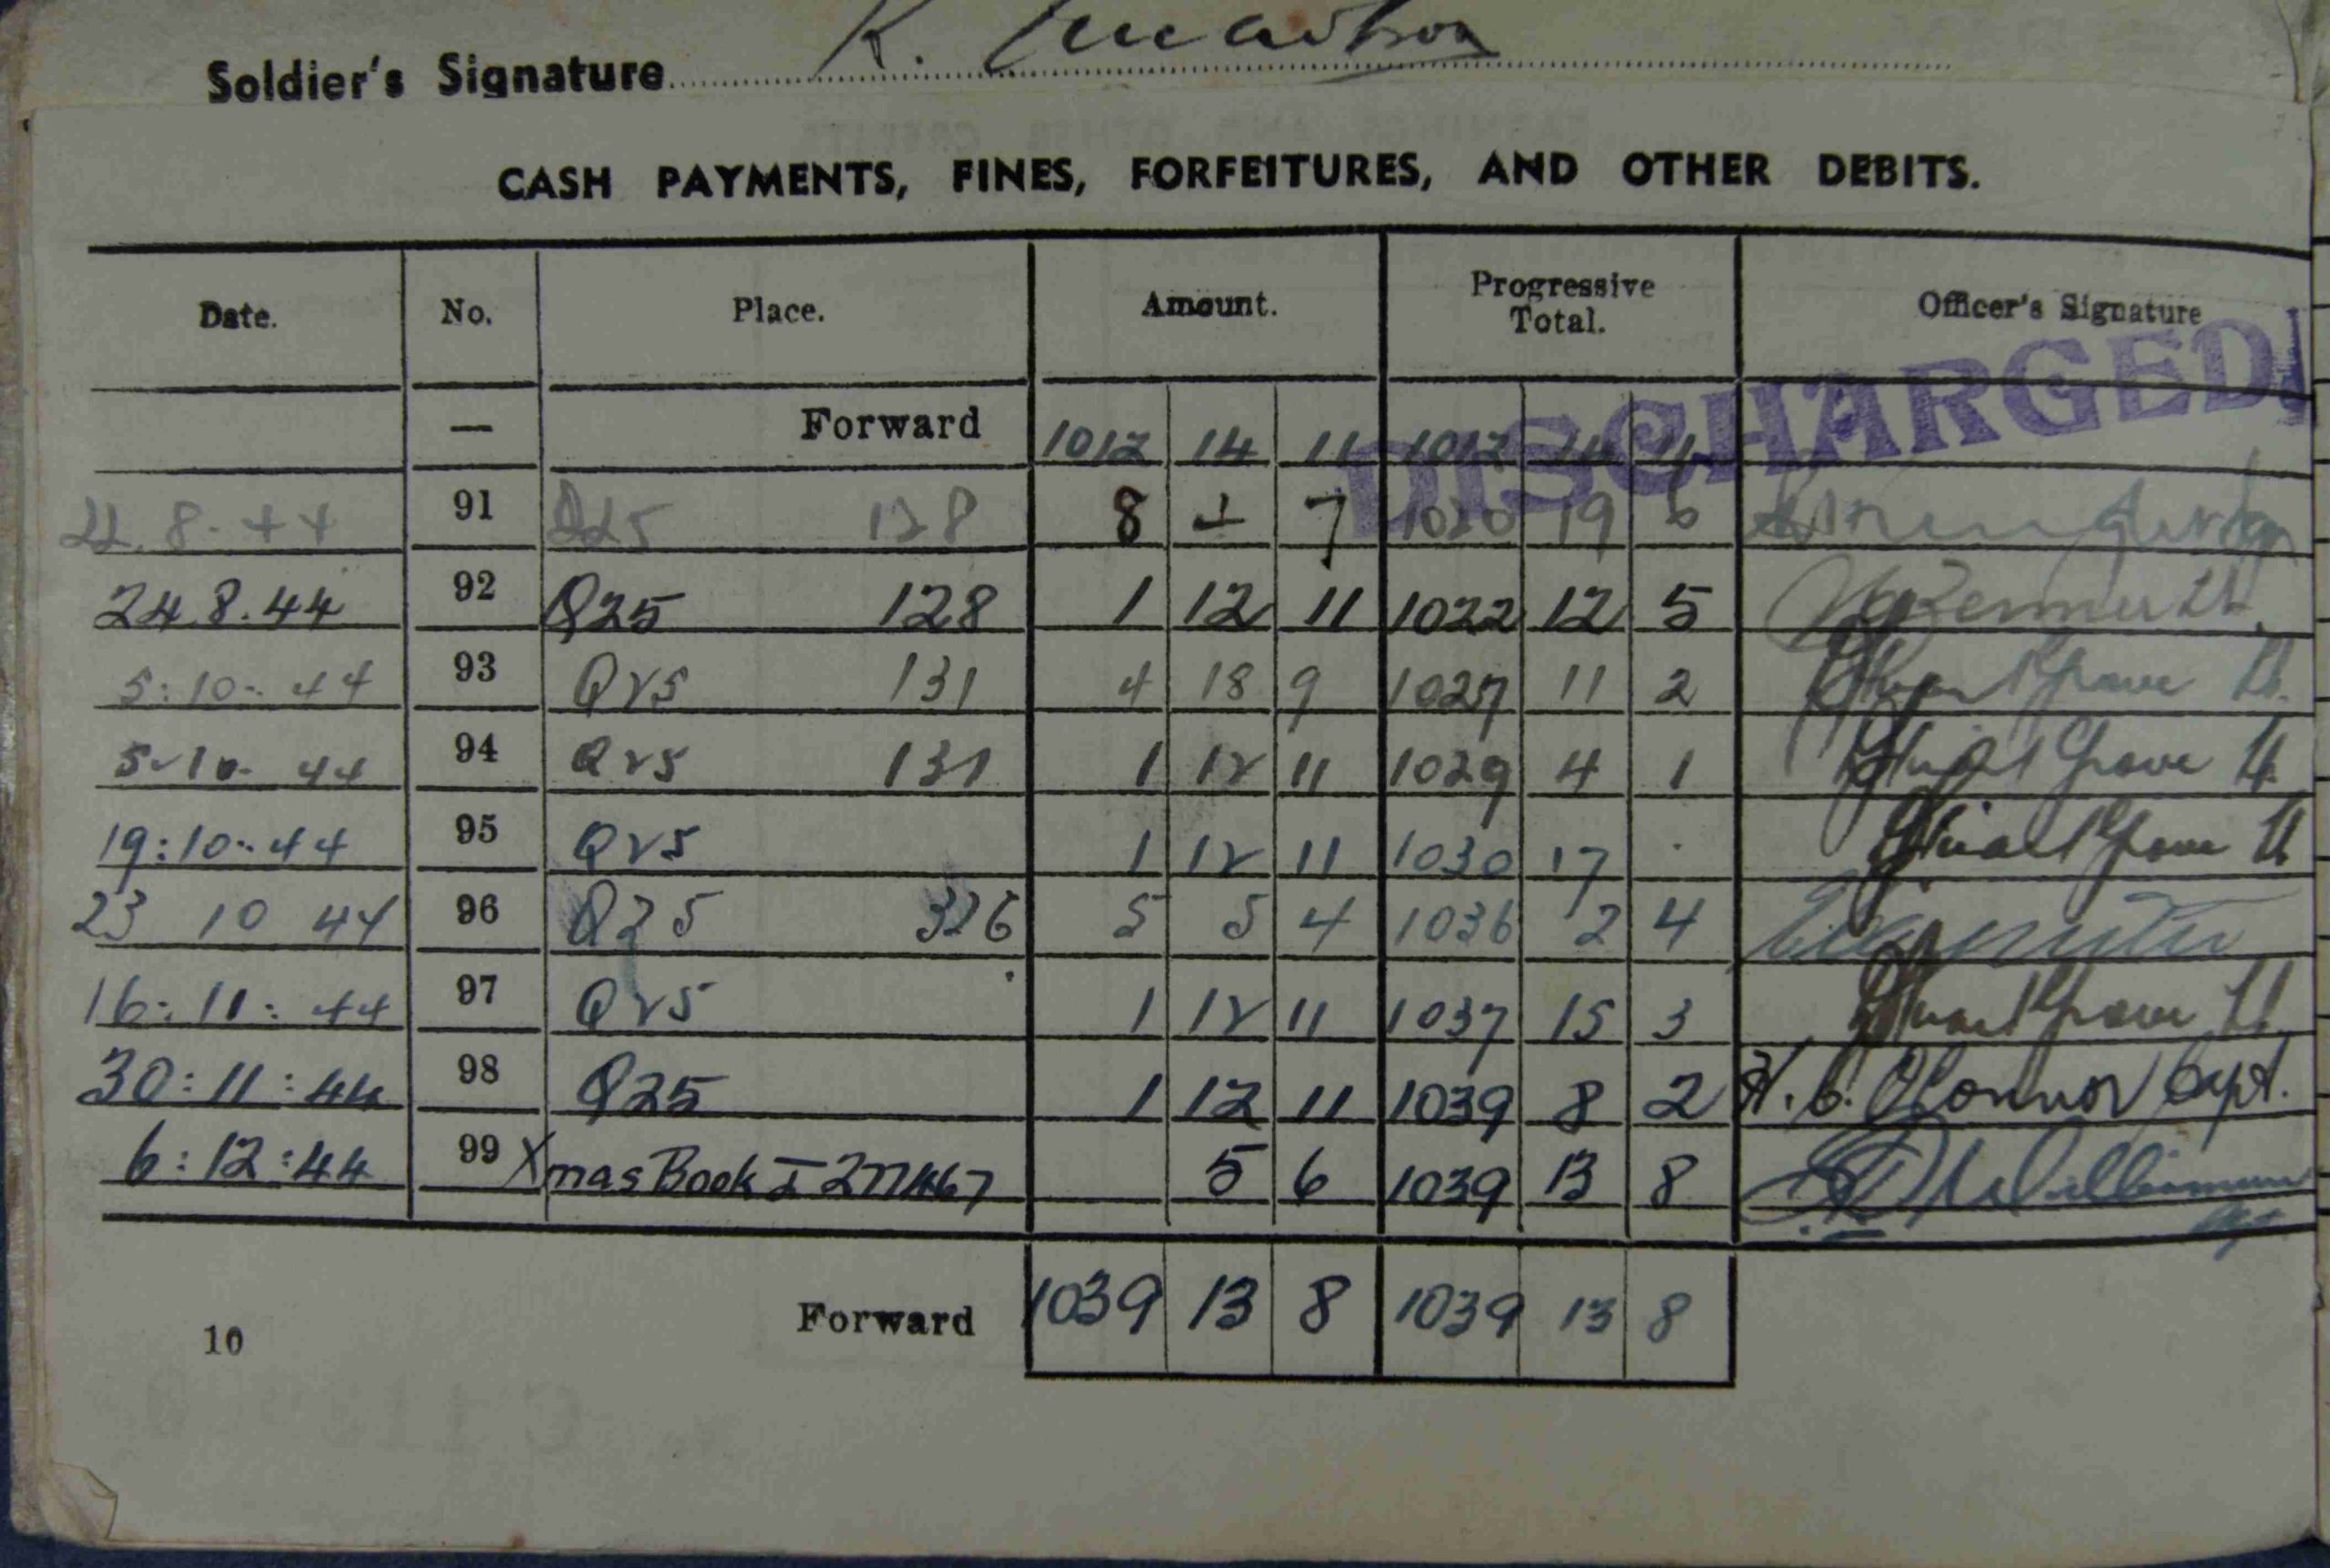 Soldier's Signature K.
CASH PAYMENTS, FINES, FORFEITURES, AND OTHER DEBITS.
Date. No. Place. Amount. Progressive Total. Officer's Signature
DISCHARGED
— Forward 1012 14 11 1012 14 11
8.44 91 Q25 128 8 4 7 1020 19 6
24.8.44 92 Q25 128 1 12 11 1022 12 5 Lt.
5:10:44 93 Q25 131 4 18 9 1027 11 2 Stuart Grove Lt.
5-10-44 94 Q25 131 1 12 11 1029 4 1 Stuart Grove Lt
19:10:44 95 Q25 1 12 11 1030 17 · Stuart Grove Lt
23 10 44 96 Q25 326 5 5 4 1036 2 4
16:11:44 97 Q25 1 12 11 1037 15 3 Stuart Grove Lt.
30:11:44 98 Q25 1 12 11 1039 8 2 H. C. O'Connor Capt.
6:12:44 99 Xmas Book I 277467 5 6 1039 13 8 Williamson
Forward 1039 13 8 1039 13 8
10